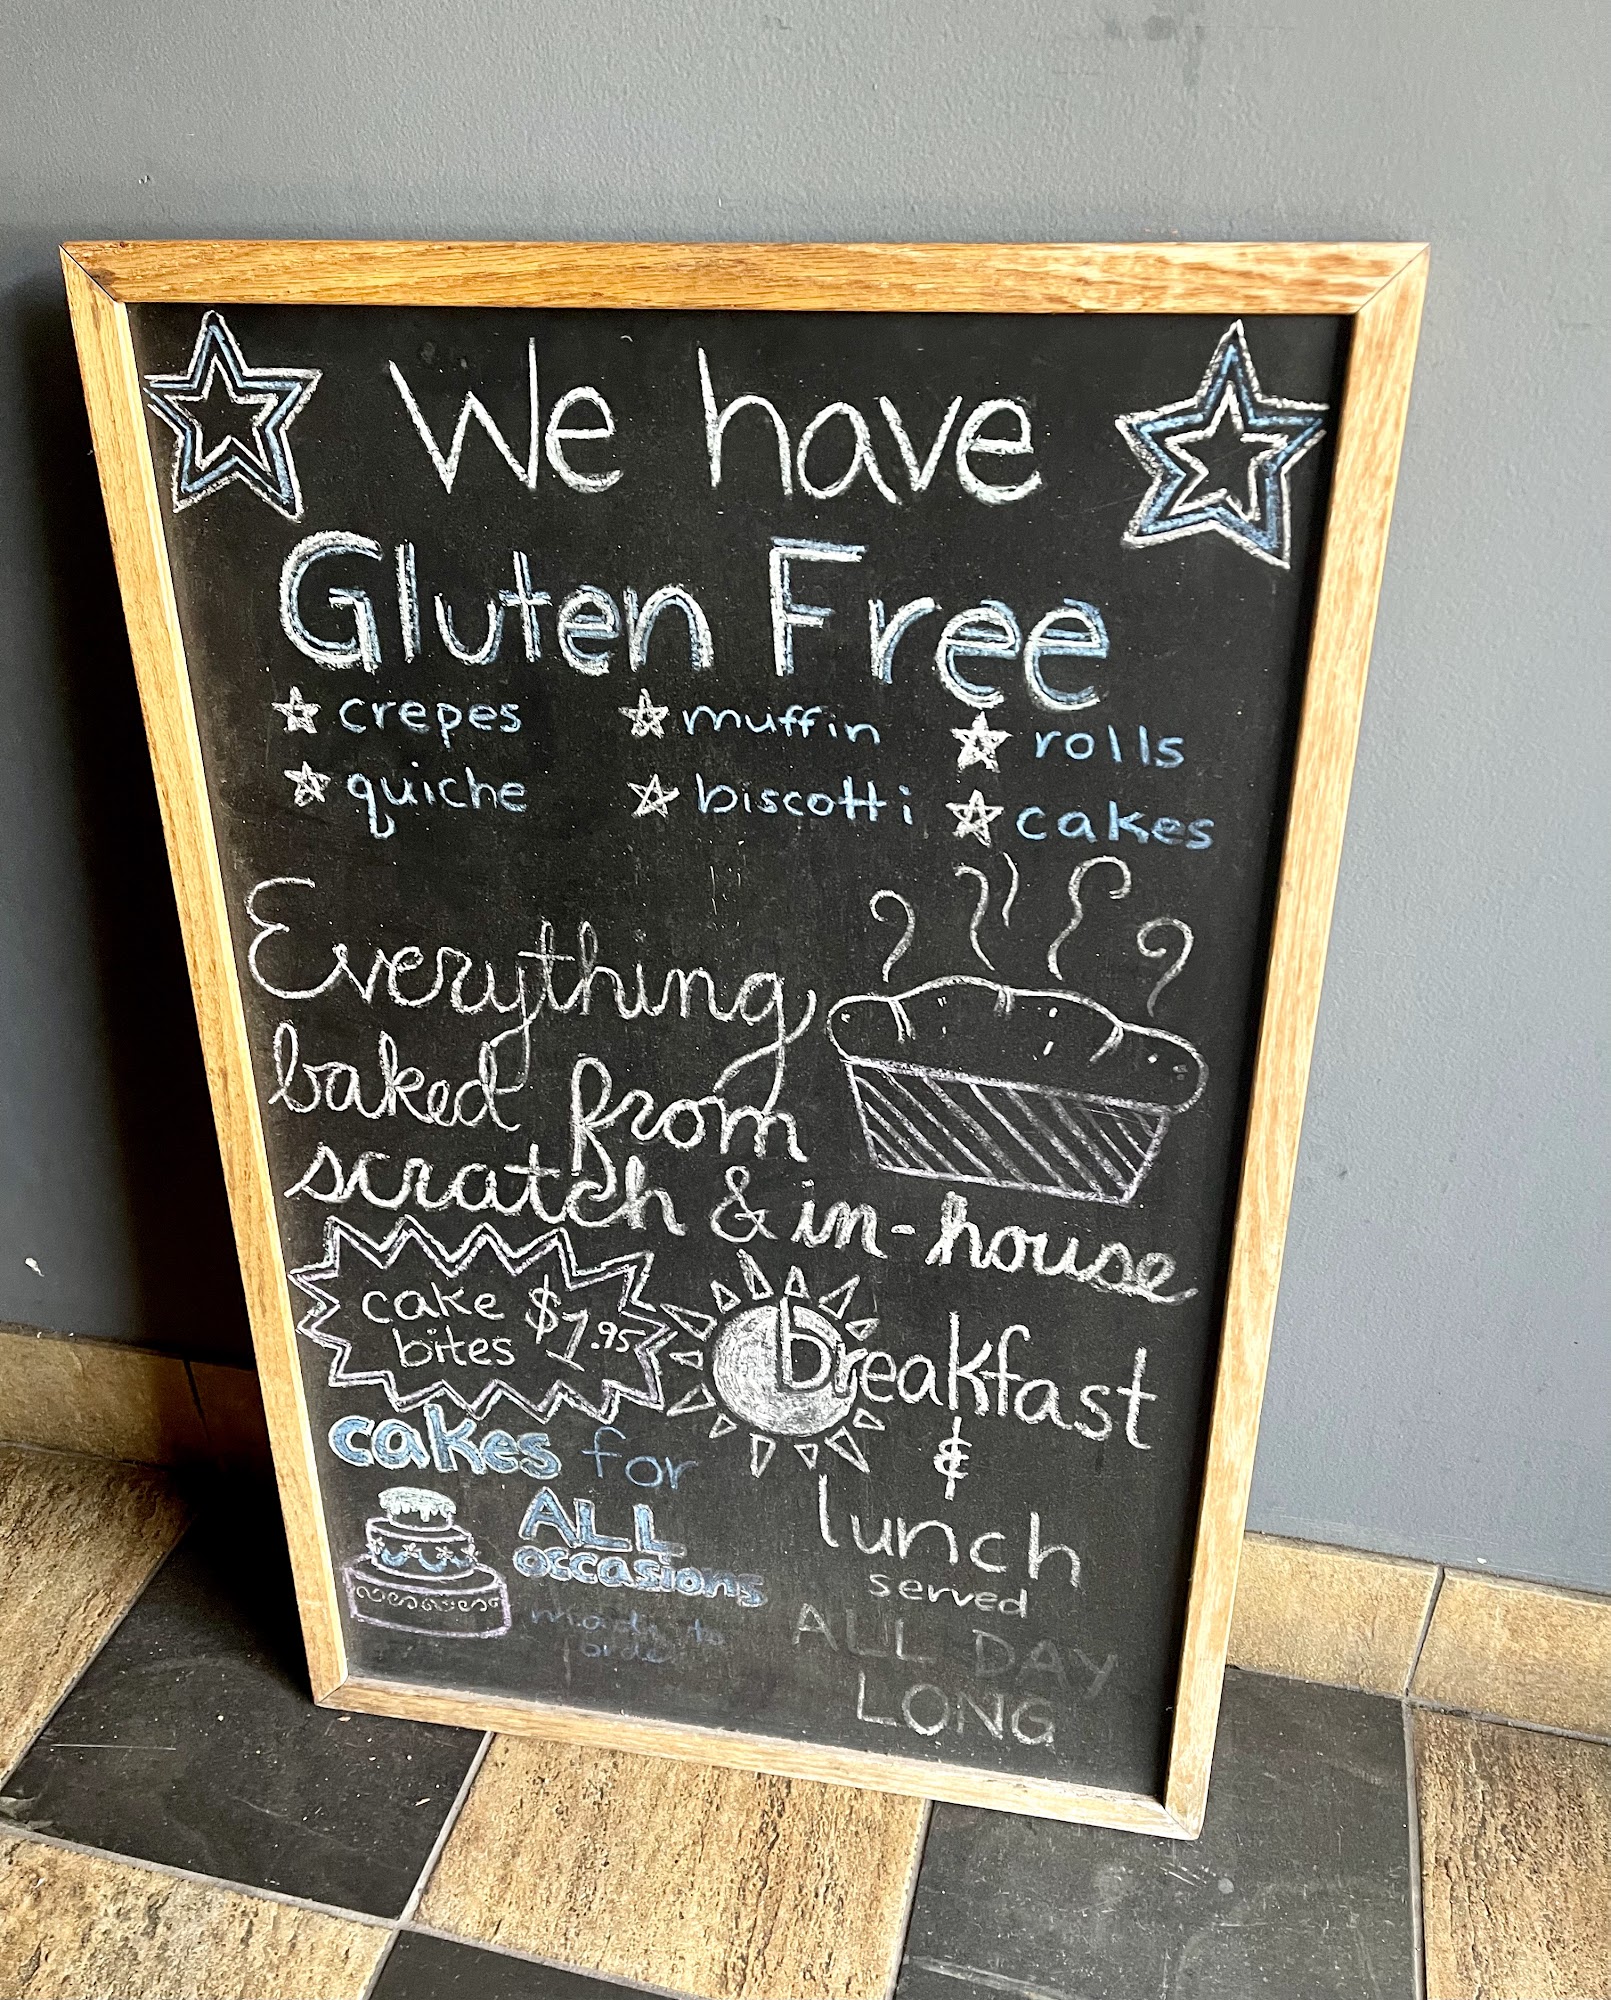 We have
Gluten Free
crepes muffin rolls
quiche biscotti cakes
Everything
baked from
scratch & in-house
cake
bites $1.95
breakfast
&
lunch
served
ALL DAY
LONG
cakes for
ALL
occasions
made to
order